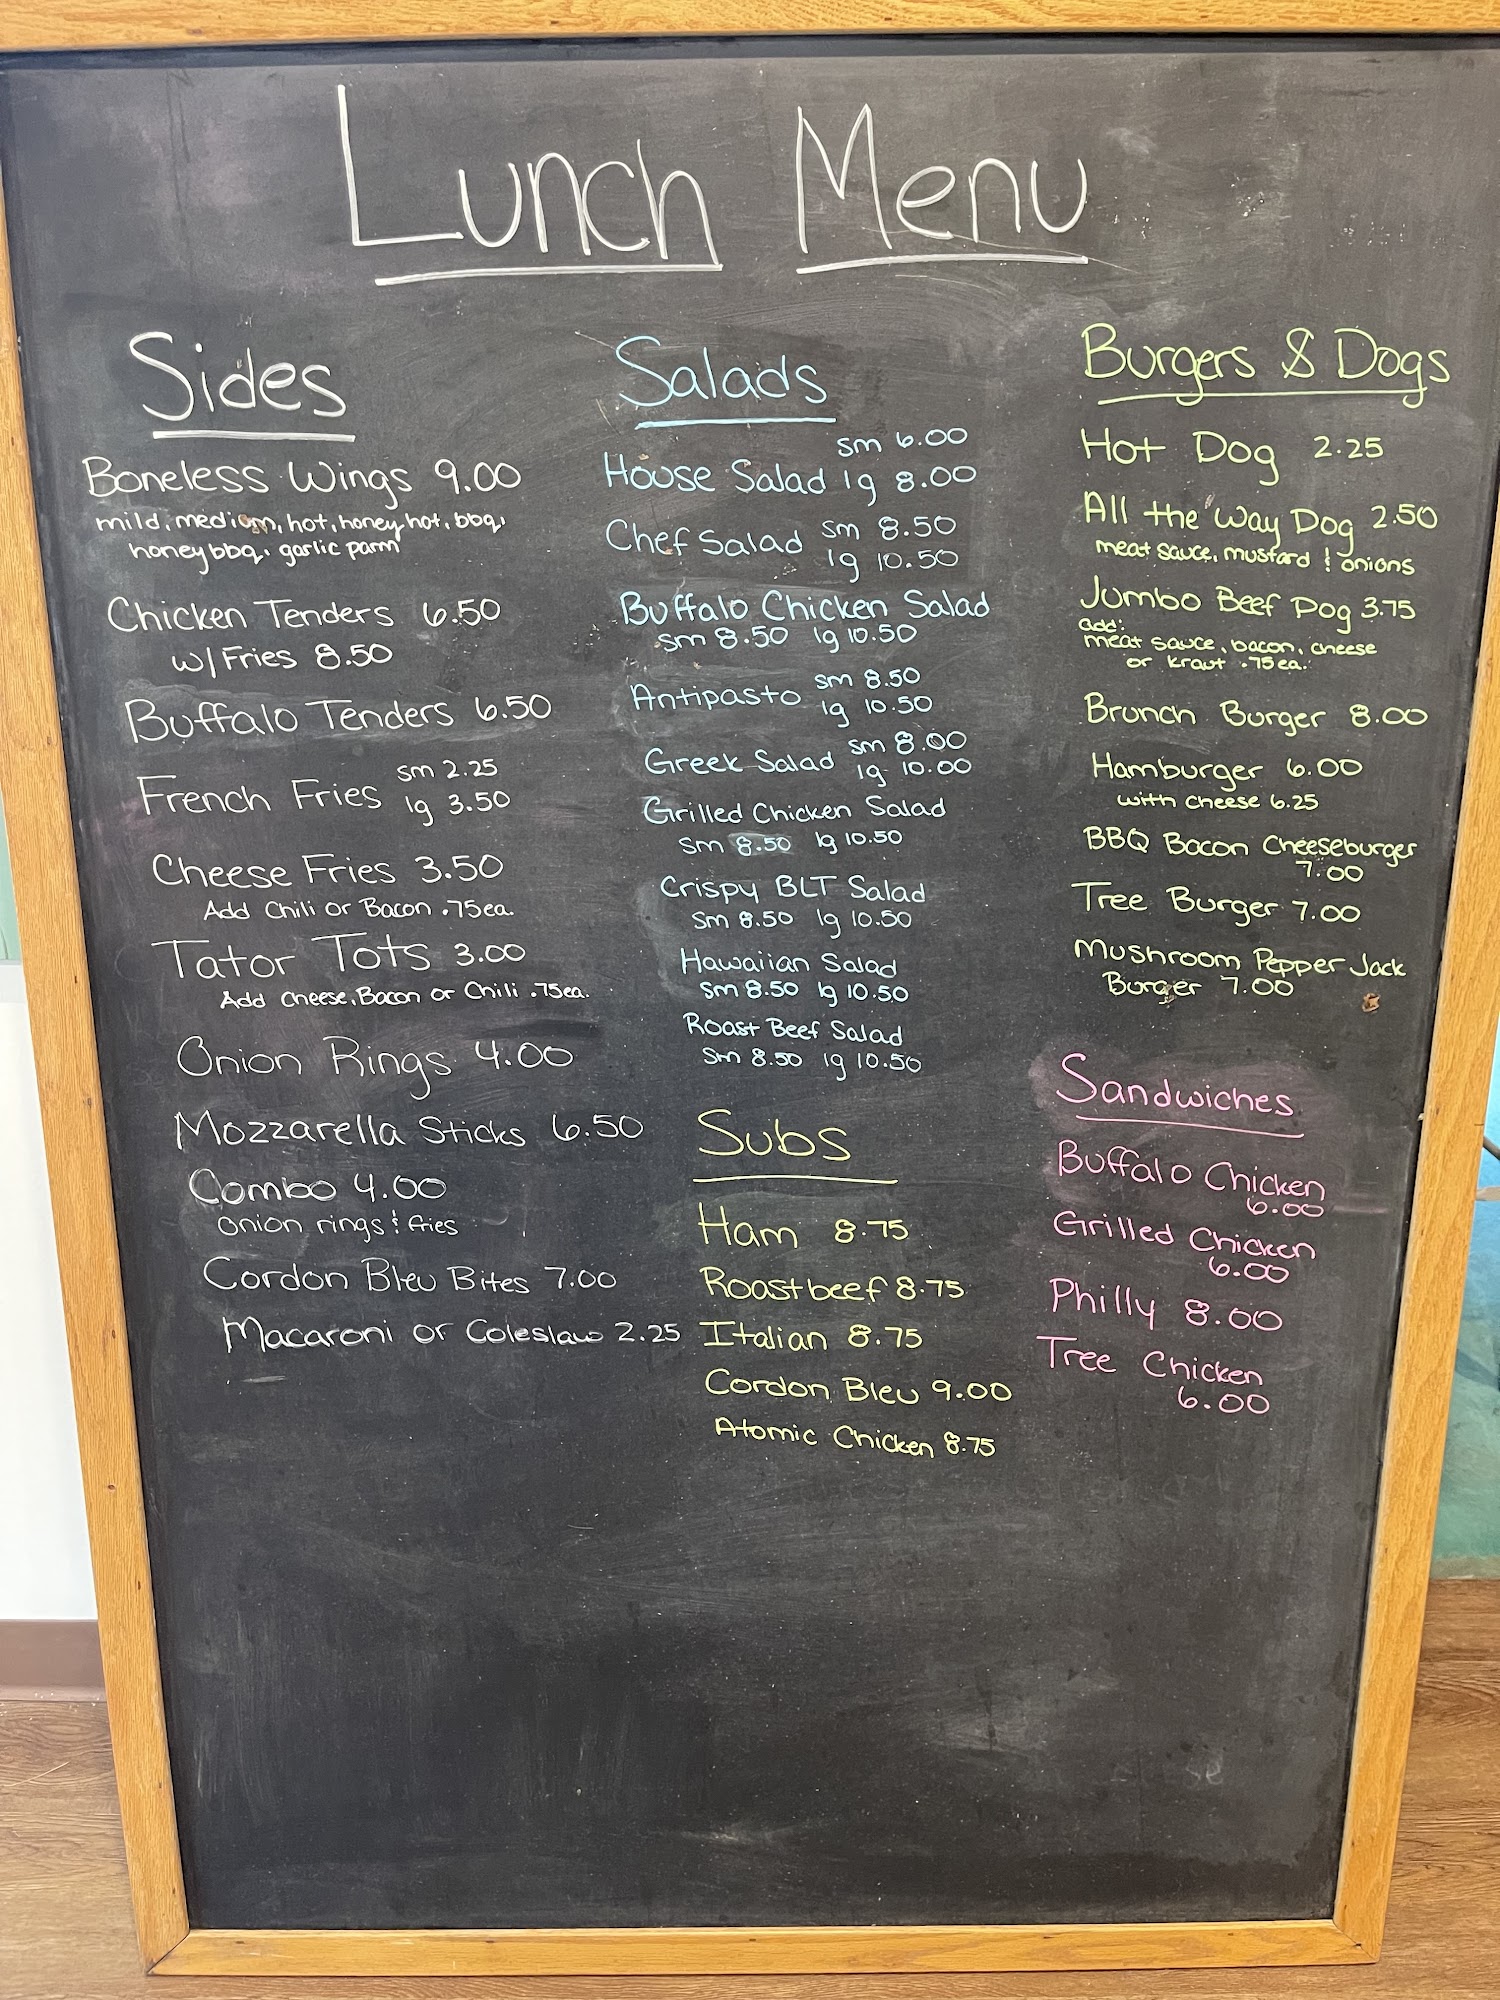 Lunch Menu
Sides
Boneless Wings 9.00
mild, medium, hot, honey hot, bbq,
honey bbq, garlic parm
Chicken Tenders 6.50
w/Fries 8.50
Buffalo Tenders 6.50
French Fries sm 2.25
lg 3.50
Cheese Fries 3.50
Add Chili or Bacon .75ea.
Tator Tots 3.00
Add Cheese, Bacon or Chili .75ea.
Onion Rings 4.00
Mozzarella Sticks 6.50
Combo 4.00
onion rings & fries
Cordon Bleu Bites 7.00
Macaroni or Coleslaw 2.25
Salads
sm 6.00
House Salad lg 8.00
Chef Salad sm 8.50
lg 10.50
Buffalo Chicken Salad
sm 8.50 lg 10.50
Antipasto sm 8.50
lg 10.50
Greek Salad sm 8.00
lg 10.00
Grilled Chicken Salad
sm 8.50 lg 10.50
Crispy BLT Salad
sm 8.50 lg 10.50
Hawaiian Salad
sm 8.50 lg 10.50
Roast Beef Salad
sm 8.50 lg 10.50
Subs
Ham 8.75
Roastbeef 8.75
Italian 8.75
Cordon Bleu 9.00
Atomic Chicken 8.75
Burgers & Dogs
Hot Dog 2.25
All the Way Dog 2.50
meat sauce, mustard & onions
Jumbo Beef Dog 3.75
add:
meat sauce, bacon, cheese
or kraut .75ea.
Brunch Burger 8.00
Hamburger 6.00
with cheese 6.25
BBQ Bacon Cheeseburger
7.00
Tree Burger 7.00
Mushroom Pepper Jack
Burger 7.00
Sandwiches
Buffalo Chicken
6.00
Grilled Chicken
6.00
Philly 8.00
Tree Chicken
6.00